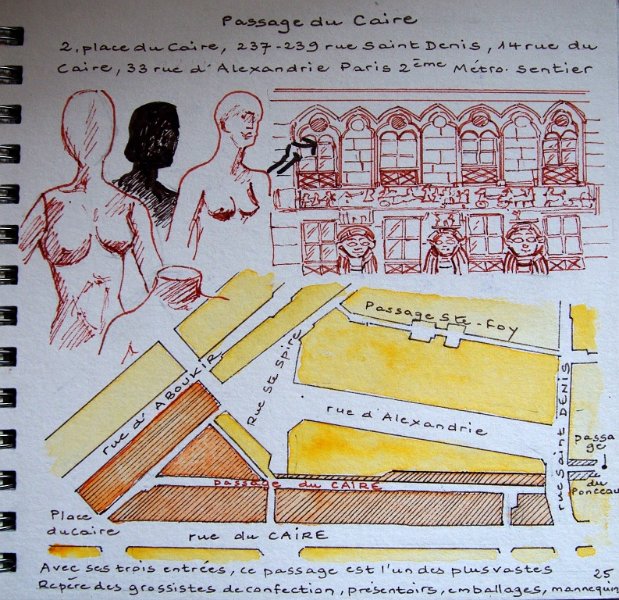 Passage du Caire
2, place du Caire, 237-239 rue Saint Denis, 14 rue du
Caire, 33 rue d'Alexandrie Paris 2ème Métro. Sentier
Passage Ste-Foy
rue d'ABOUKIR
Rue Ste Spire
rue d'Alexandrie
rue Saint DENIS
passa
ge
du
Ponceau
passage du CAIRE
Place
du Caire
rue du CAIRE
Avec ses trois entrées, ce passage est l'un des plus vastes
25
Repère des grossistes de confection, présentoirs, emballages, mannequin